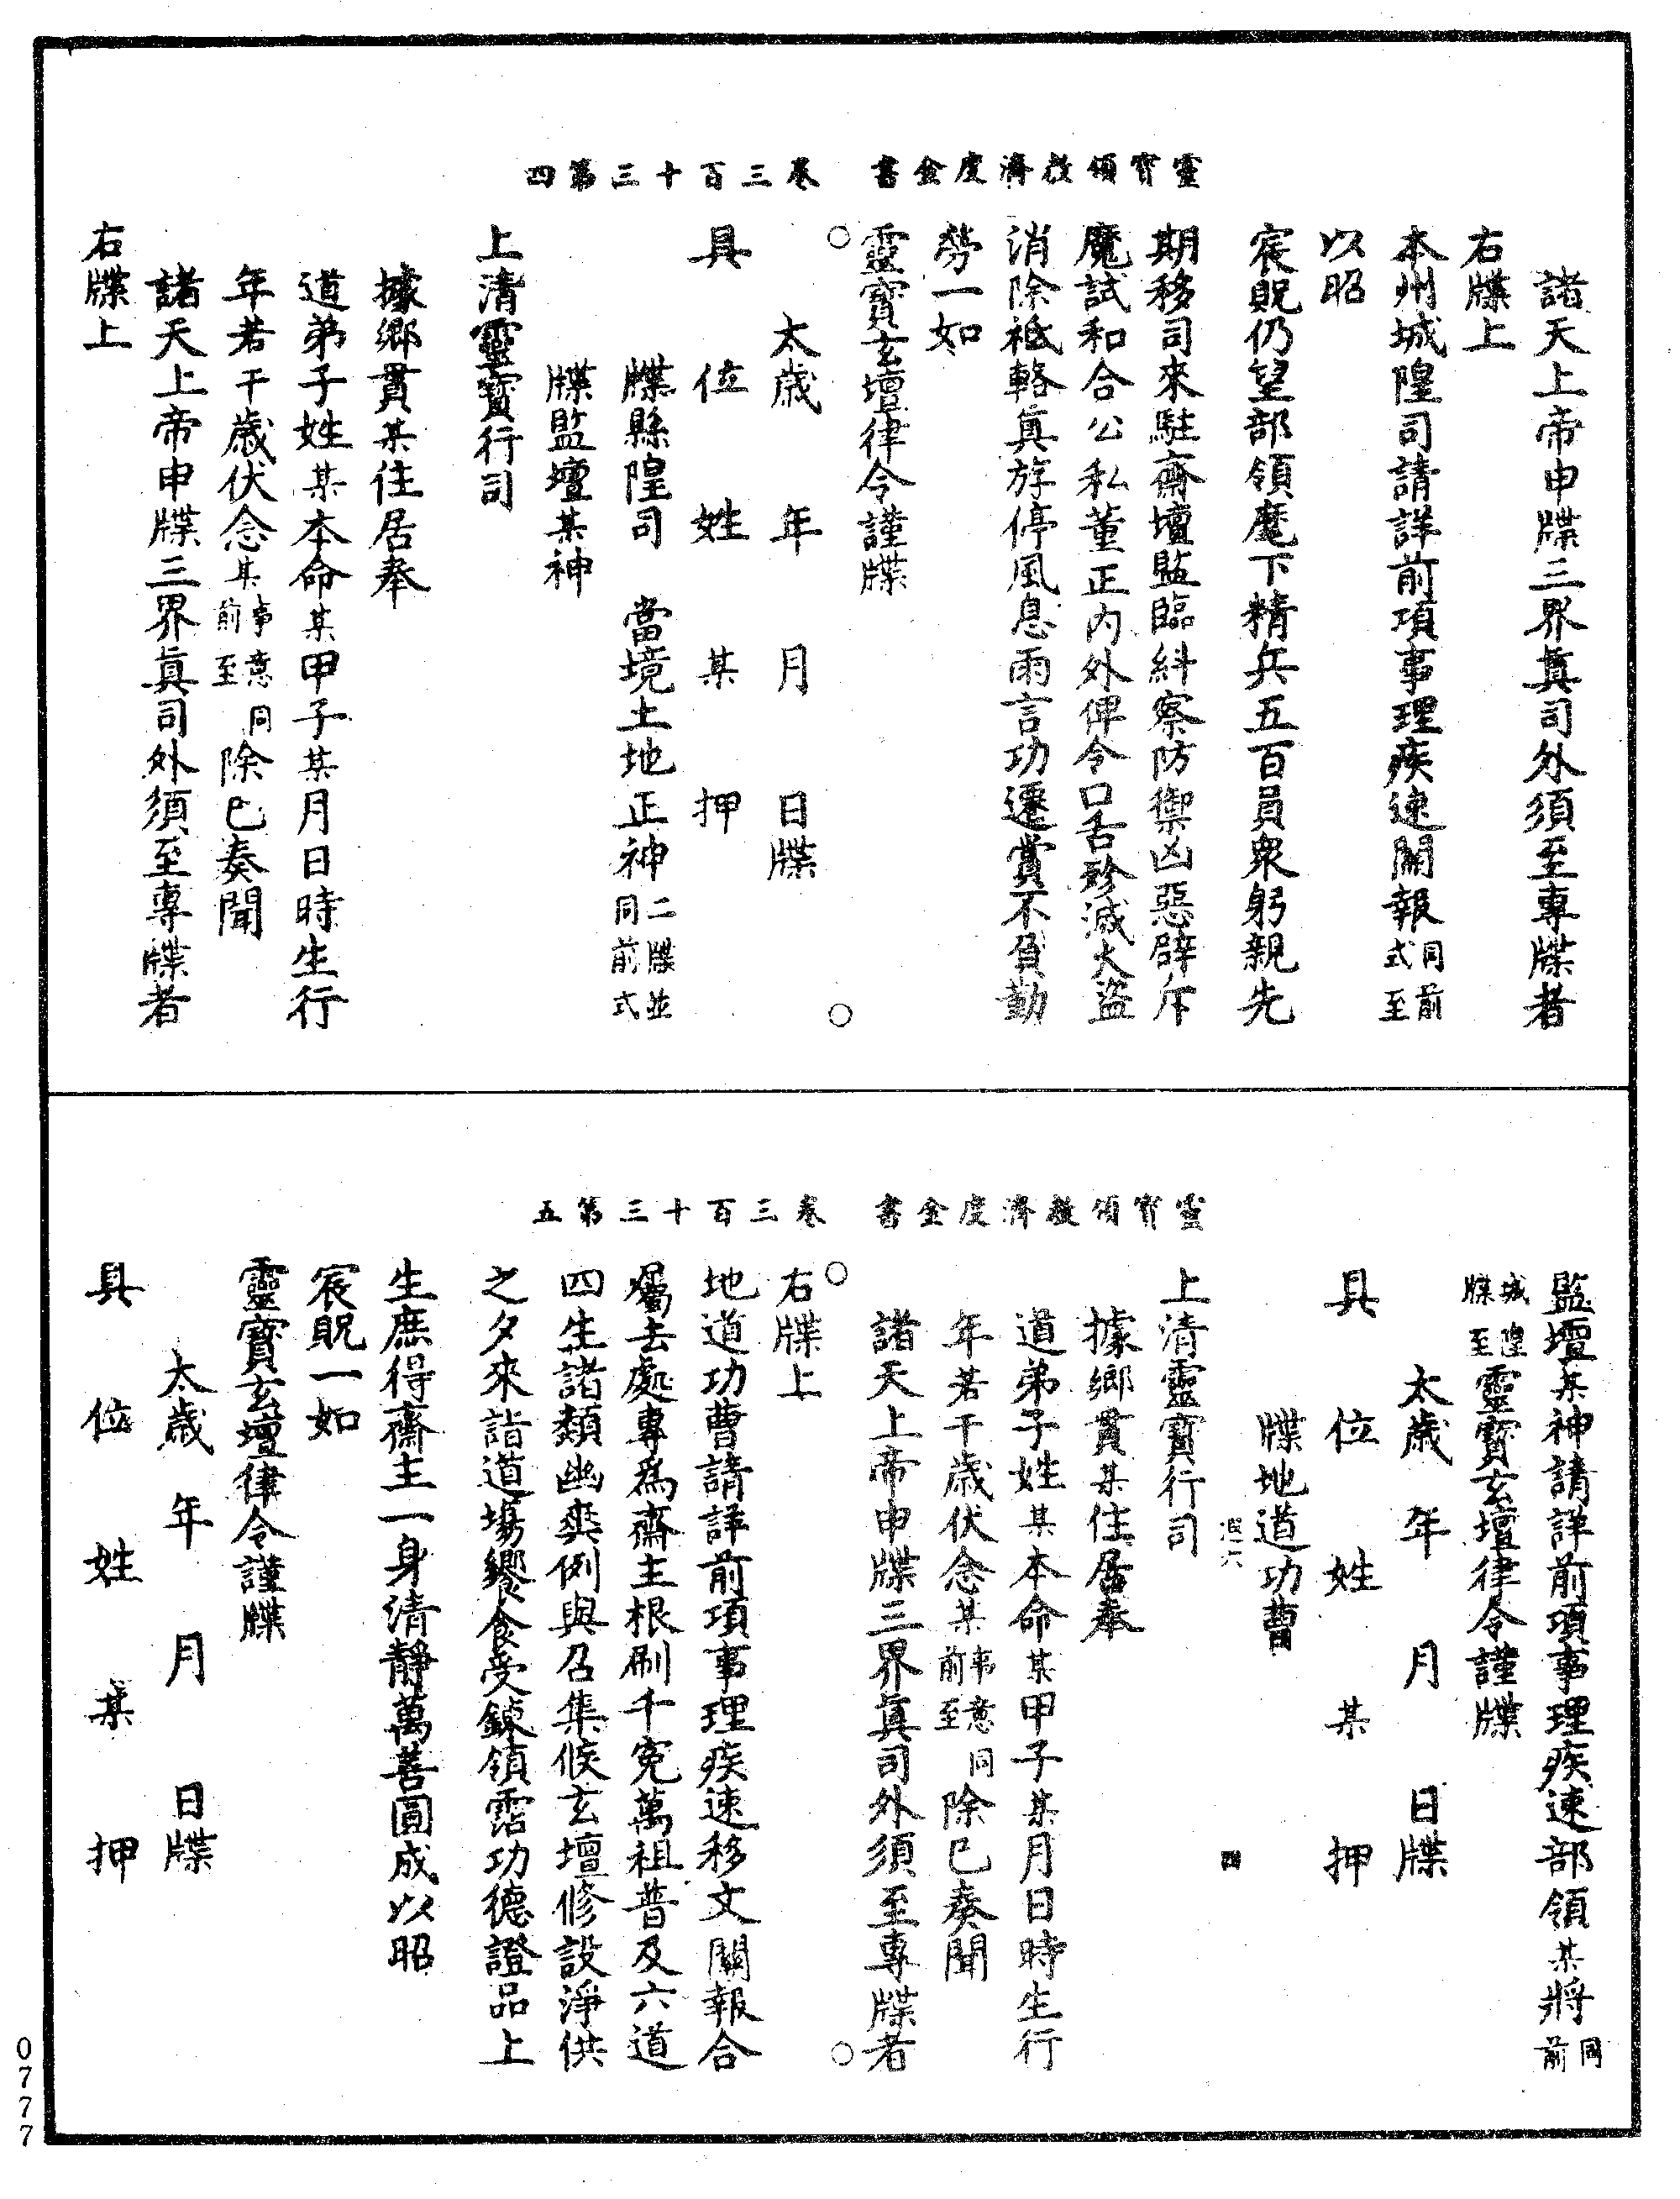 靈寶領教濟度金書 卷三百十三第四
諸天上帝申牒三界眞司外須至專牒者
右牒上
本州城隍司請詳前項事理疾速關報同前式至
以昭
宸貺仍望部領麾下精兵五百員衆躬親先
期移司來駐齋壇監臨糾察防禦凶惡辟斥
魔試和合公私董正内外俾令口舌殄滅火盜
消除祗輅眞斿停風息雨言功遷賞不負勤
勞一如
靈寶玄壇律令謹牒
太歲 年 月 日牒
具 位 姓 某 押
牒縣隍司 當境土地正神二牒並同前式
牒監壇某神
上清靈寶行司
據鄉貫某住居奉
道弟子姓某本命某甲子某月日時生行
年若干歲伏念某事意同前至除已奏聞
諸天上帝申牒三界眞司外須至專牒者
右牒上
靈寶領教濟度金書 卷三百十三第五
監壇某神請詳前項事理疾速部領某將同前
城隍牒至靈寶玄壇律令謹牒
太歲 年 月 日牒
具 位 姓 某 押
牒地道功曹
四
上清靈寶行司
據鄉貫某住居奉
道弟子姓某本命某甲子某月日時生行
年若干歲伏念某事意同前至除已奏聞
諸天上帝申牒三界眞司外須至專牒者
右牒上
地道功曹請詳前項事理疾速移文關報合
屬去處專爲齋主根刷千寃萬祖普及六道
四生諸類幽爽例與召集候玄壇修設淨供
之夕來詣道場饗食受鍊領霑功德證品上
生庶得齋主一身清靜萬善圓成以昭
宸貺一如
靈寶玄壇律令謹牒
太歲 年 月 日牒
具 位 姓 某 押
0777